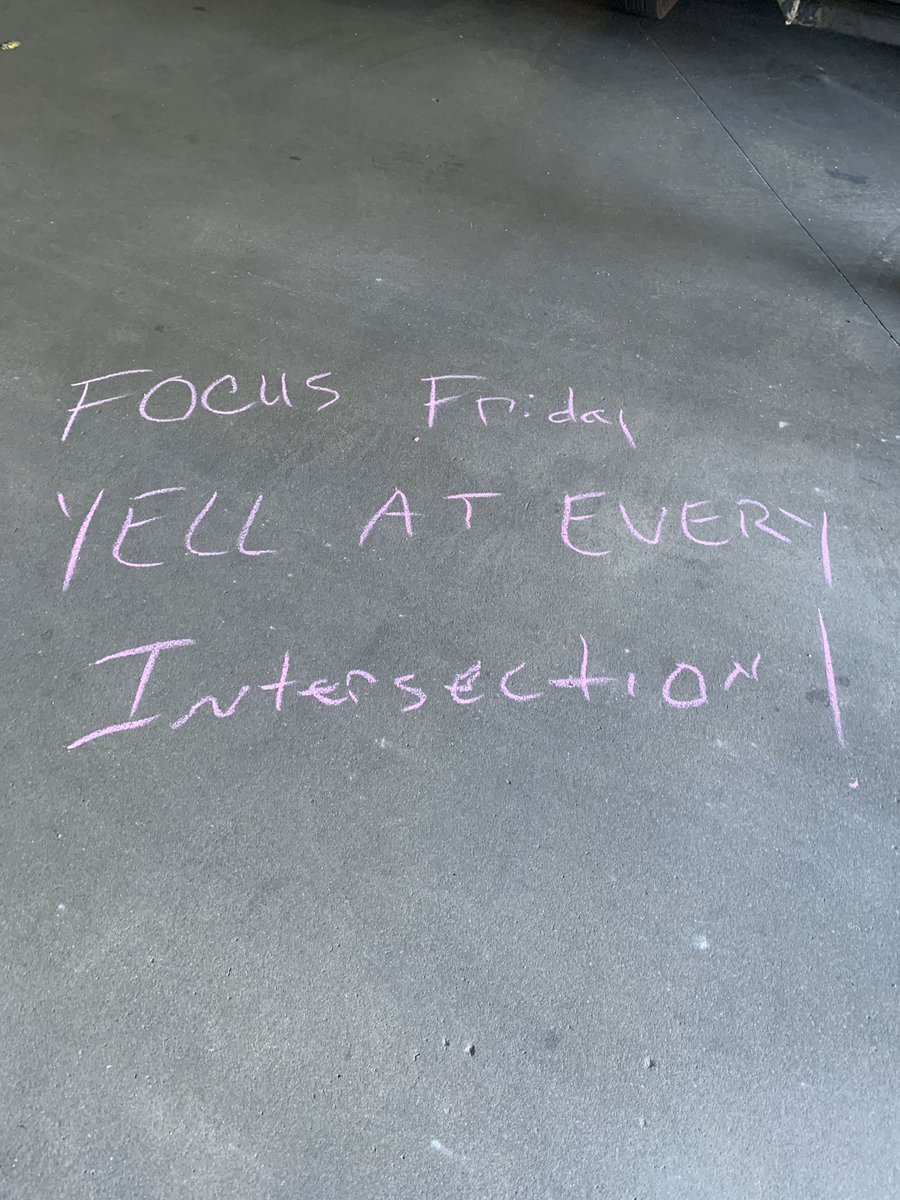 FOCUS Friday
YELL AT EVERY
Intersection!